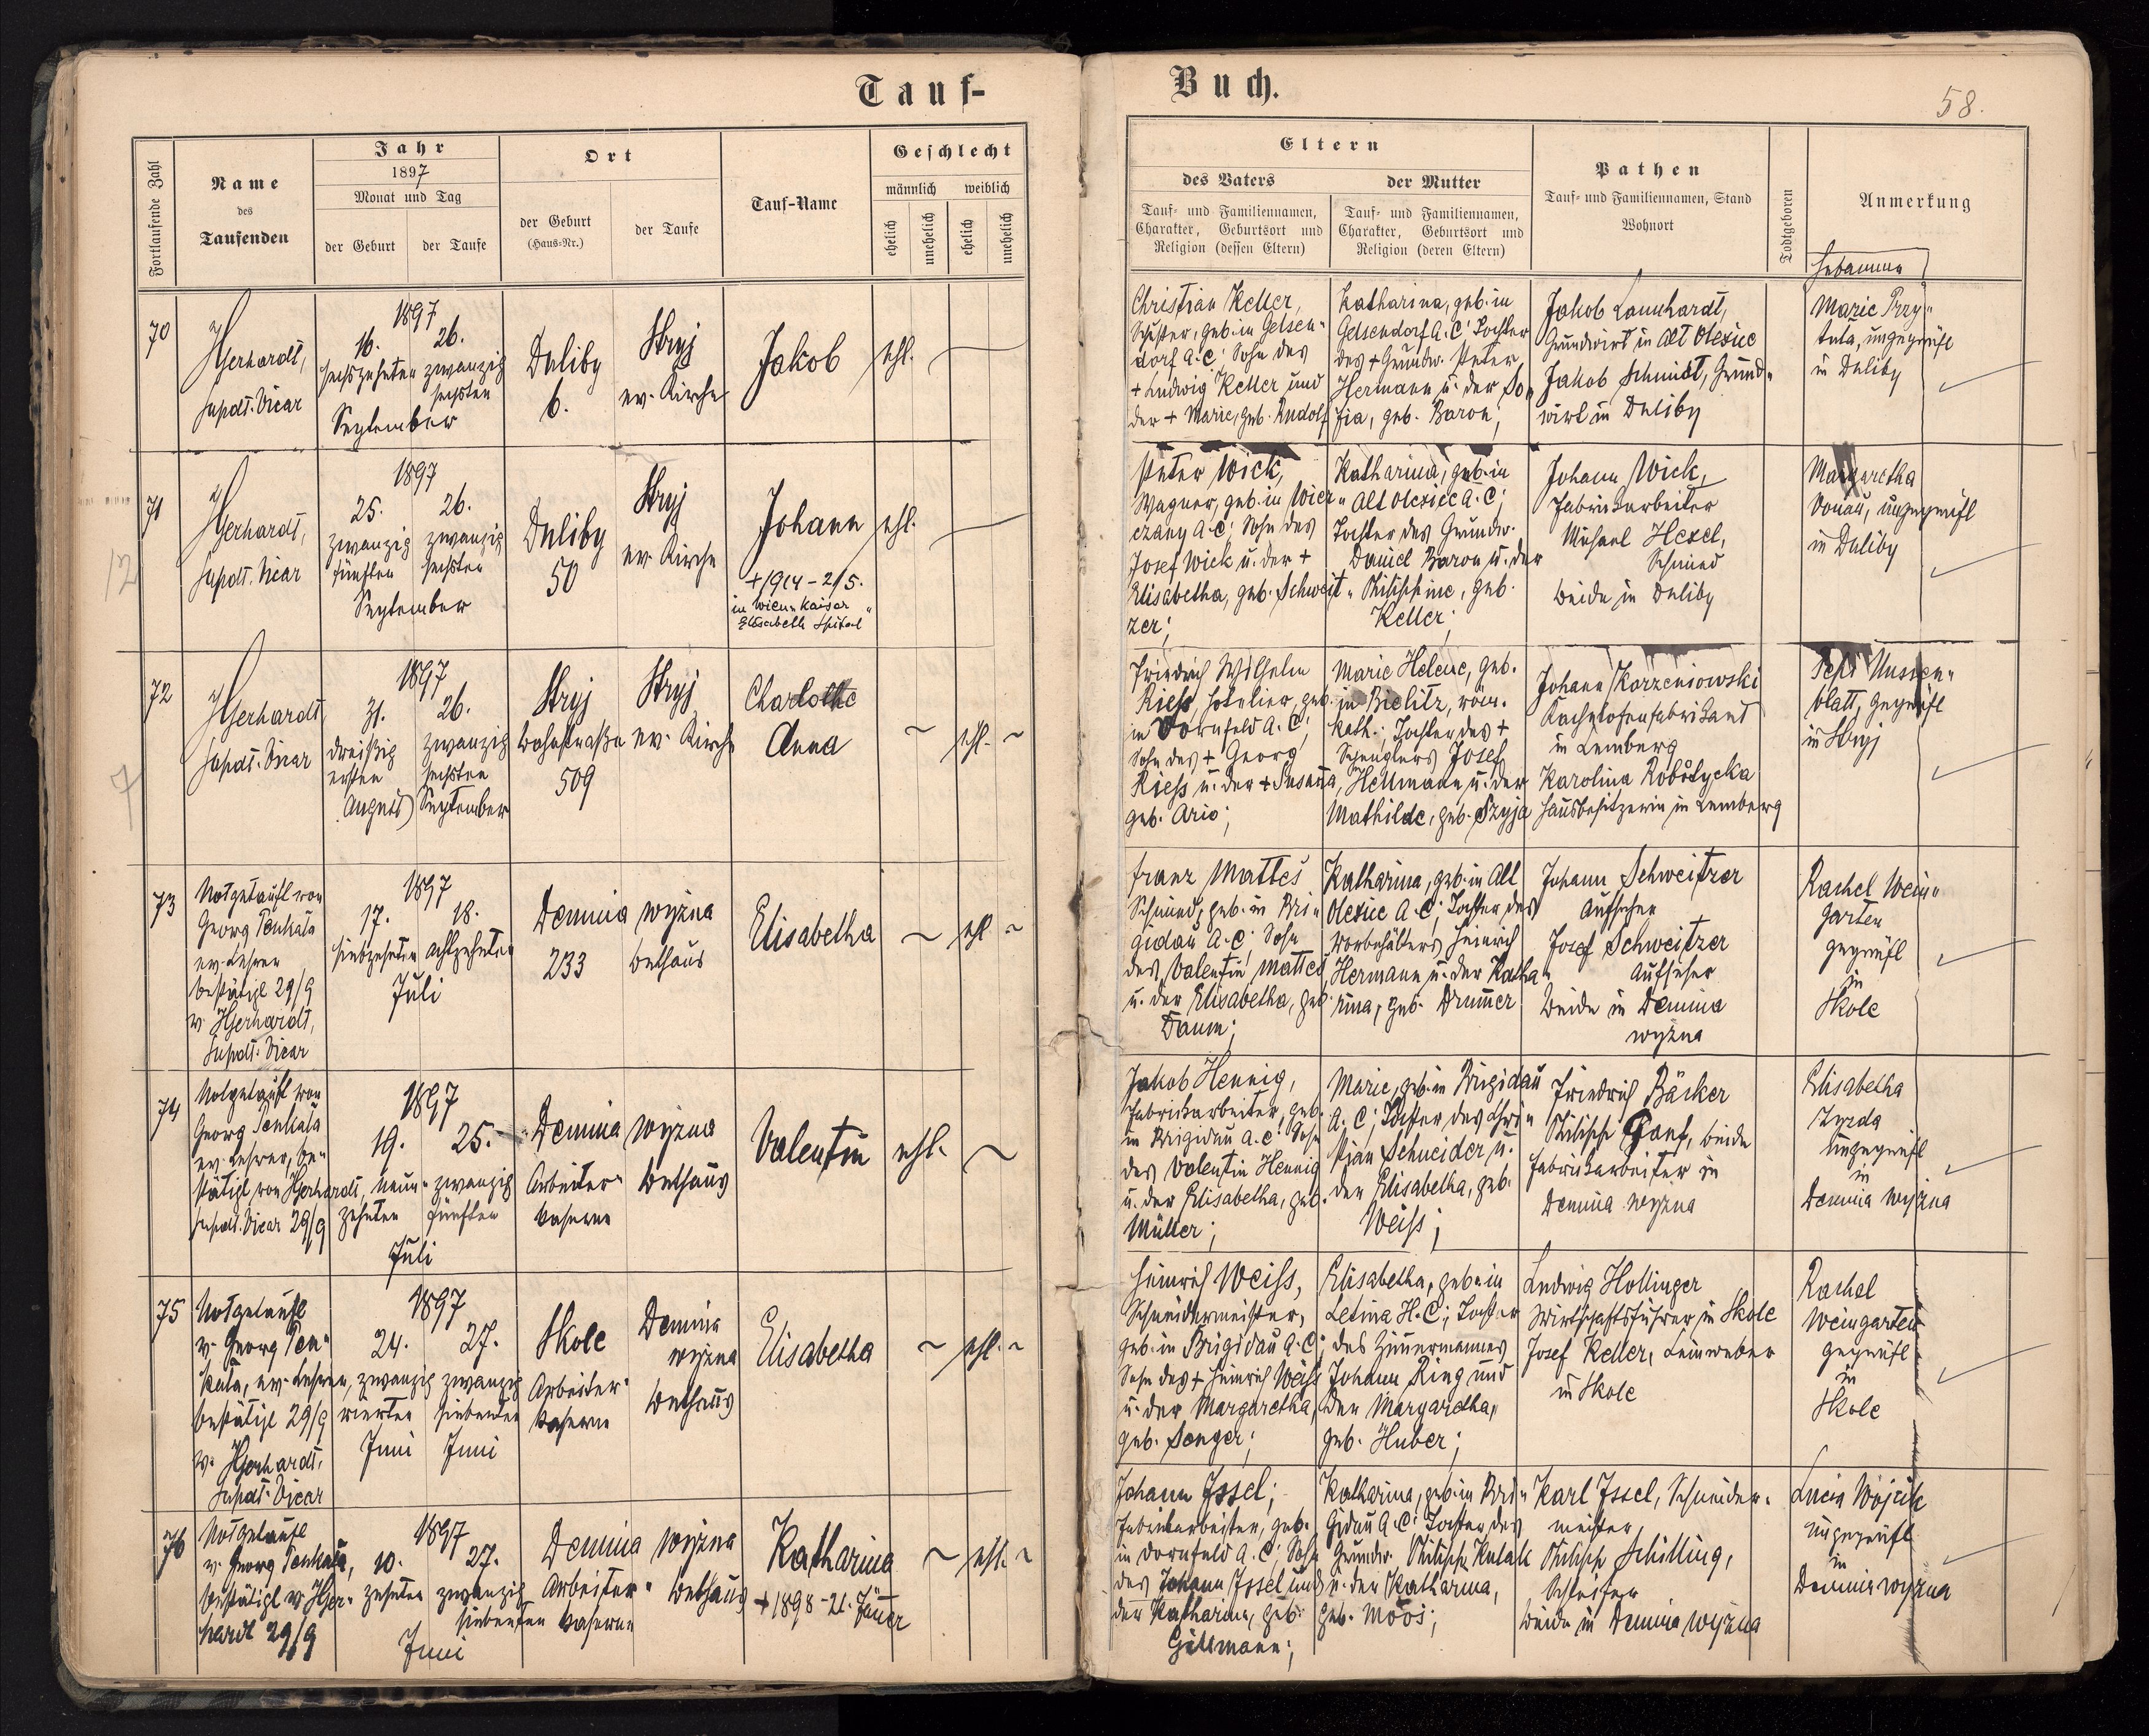 Tauf-
Buch.
58.
Fortlaufende Zahl
Name
des
Taufenden
Jahr
1897
Monat und Tag
der Geburt
der Taufe
Ort
der Geburt
(Haus-Nr.)
der Taufe
Tauf-Name
Geschlecht
männlich
weiblich
ehelich
unehelich
ehelich
unehelich
Eltern
des Vaters
Tauf- und Familiennamen,
Charakter, Geburtsort und
Religion (dessen Eltern)
der Mutter
Tauf- und Familiennamen,
Charakter, Geburtsort und
Religion (deren Eltern)
Pathen
Tauf- und Familiennamen, Stand
Wohnort
Todtgeboren
Anmerkung
Hebamme
70
Hgerhardt,
Supdt. Vicar
1897
16.
sechszehnten
26.
zwanzig
sechsten
September
Duliby
6.
Stryj
ev. Kirche
Jakob
ehl.
Christian Keller,
Schuster, geb. in Gelsen-
dorf A.C; Sohn des
+ Ludwig Keller und
der + Marie, geb. Rudolf
Katharina, geb. in
Gelsendorf A.C; Tochter
des + Grundw. Peter
Hermann u. der So-
fia, geb. Baron;
Jakob Launhardt,
Grundwirt in Alt Olexice
Jakob Schmidt, Grund-
wirt in Duliby
Marie Przy-
tuła, ungeprüft
in Duliby
71
Hgerhardt,
Supdt. Vicar
1897
25.
zwanzig
fünften
26.
zwanzig
sechsten
September
Duliby
50
Stryj
ev. Kirche
Johann
+ 1914 - 2/5.
in Wien "Kaiser
Elisabeth Spital"
ehl.
Peter Wick,
Wagner, geb. in Wier-
czany A.C; Sohn des
Josef Wick u. der +
Elisabetha, geb. Schweit-
zer;
Katharina, geb. in
Alt Olexice A.C;
Tochter des Grundw.
Daniel Baron u. der
Philippine, geb.
Keller;
Johann Wick,
Fabriksarbeiter
Michael Hexel,
Schmied
beide in Duliby
Margaretha
Donau, ungeprüft
in Duliby
72
Hgerhardt
Supdt. Vicar
1897
31.
dreißig
ersten
August
26.
zwanzig
sechsten
September
Stryj
Bahnstraße
509
Stryj
ev. Kirche
Charlotte
Anna
ehl.
Friedrich Wilhelm
Riess, Hotelier, geb.
in Dornfeld A.C;
Sohn des + Georg
Riess u. der + Susanna,
geb. Ario;
Marie Helene, geb.
in Bielitz, röm.
kath.; Tochter des +
Spenglers Josef
Hellmann u. der
Mathilde, geb. Szyja
Johann Korzeniowski
Kachelofenfabrikant
in Lemberg
Karolina Robstycka
Hausbesitzerin in Lemberg
Pepi Nussen-
blatt, geprüft
in Stryj
73
Notgetauft von
Georg Penkala
ev. Lehrer
bestätigt 29/9
v. Hgerhardt,
Supdt. Vicar
1897
17.
siebzehnten
18.
achtzehnten
Juli
Demnia wyżna
233
Bethaus
Elisabetha
ehl.
Franz Mattes
Schmied, geb. in Bri-
gidau A.C; Sohn
des Valentin Mattes
u. der Elisabetha, geb.
Daum;
Katharina, geb. in Alt
Olexice A.C; Tochter des
Vorbehälters Heinrich
Hermann u. der Katha-
rina, geb. Drumer
Johann Schweitzer
Aufseher
Josef Schweitzer
Aufseher
beide in Demnia
wyżna
Rachel Wein-
garten
geprüft
in
Skole
74
Notgetauft von
Georg Penkala
ev. Lehrer, be-
stätigt von Hgerhardt,
Supdt. Vicar 29/9
1897
19.
neun-
zehnten
25.
zwanzig
fünften
Juli
Demnia wyżna
Arbeiter-
kaserne
Bethaus
Valentin
ehl.
Jakob Hennig,
Fabriksarbeiter, geb.
in Brigidau A.C; Sohn
des Valentin Hennig
u. der Elisabetha, geb.
Müller;
Marie, geb. in Brigidau
A.C; Tochter des Chri-
stian Schneider u.
der Elisabetha, geb.
Weiss;
Friedrich Bäcker
Philipp Ganf, beide
Fabriksarbeiter in
Demnia wyżna
Elisabetha
Zyzda
ungeprüft
in
Demnia wyżna
75
Notgetauft
v. Georg Pen-
kala, ev. Lehrer,
bestätigt 29/9
v. Hgerhardt,
Supdt. Vicar
1897
24.
zwanzig
vierten
Juni
27.
zwanzig
siebenten
Juni
Skole
Arbeiter-
kaserne
Demnia
wyżna
Bethaus
Elisabetha
ehl.
Heinrich Weiss,
Schneidermeister,
geb. in Brigidau A.C;
Sohn des + Heinrich Weiss
u. der Margaretha,
geb. Senger;
Elisabetha, geb. in
Letina H.C; Tochter
des Zimmermannes
Johann Ring und
der Margaretha,
geb. Huber;
Ludwig Hollinger
Wirtschaftsführer in Skole
Josef Keller, Leinweber
in Skole
Rachel
Weingarten
geprüft
in
Skole
76
Notgetauft
v. Georg Penkala,
bestätigt v. Hger-
hardt 29/9
1897
10.
zehnten
27.
zwanzig
siebenten
Juni
Demnia wyżna
Arbeiter-
kaserne
Bethaus
Katharina
+ 1898 - 21. Jänner
ehl.
Johann Issel;
Fabriksarbeiter, geb.
in Dornfeld A.C; Sohn
des Johann Issel und
der Katharina, geb.
Gillmann;
Katharina, geb. in Bri-
gidau A.C; Tochter des
Grundw. Philipp Kulak
u. der Katharina,
geb. Moos;
Karl Issel, Schneider-
meister,
Philipp Schilling,
Schleifer
beide in Demnia wyżna
Lucia Wójcik
ungeprüft
in
Demnia wyżna
12
7